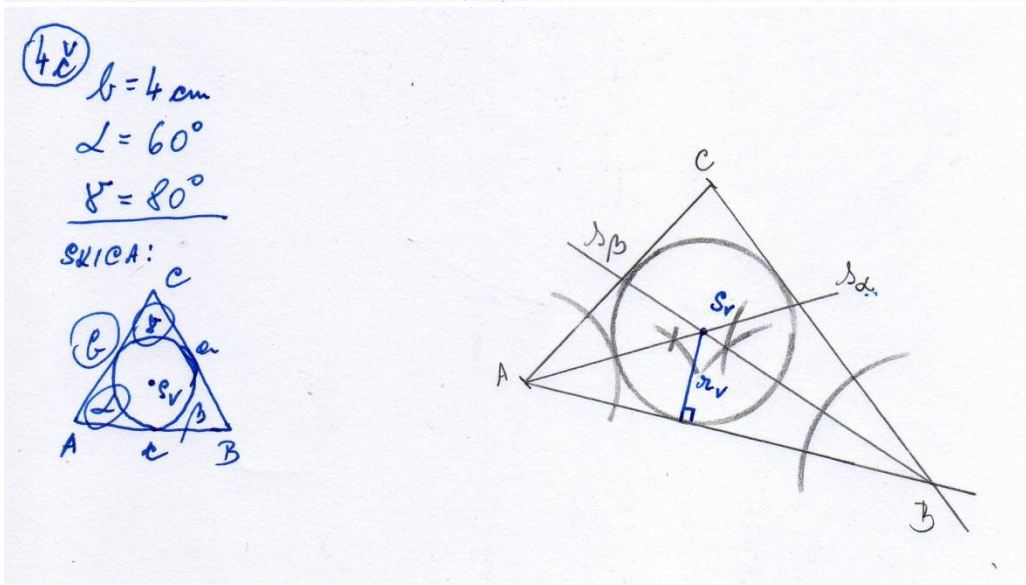 4č
b = 4 cm
α = 60°
γ = 80°
SKICA:
C
γ
b
a
Sᵥ
α
β
A
c
B
C
s_β
s_α
Sᵥ
A
rᵥ
B